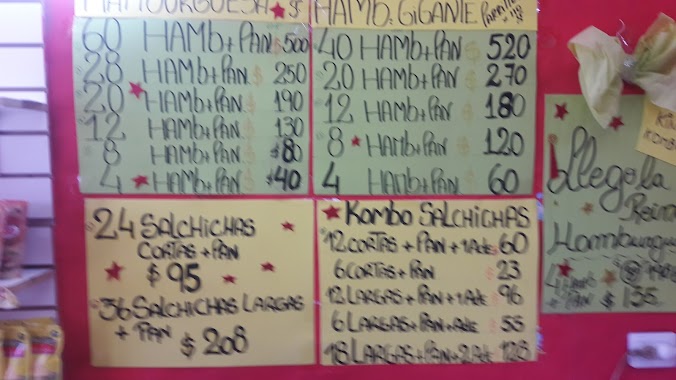 HAMBURGUESA $
60 HAMb+PAN $ 500
28 HAMb+PAN $ 250
20 HAMb+PAN $ 190
12 HAMb+PAN $ 130
8 HAMb+PAN $80
4 HAMb+PAN $40
HAMb. GIGANTE
40 HAMb+PAN $ 520
20 HAMb+PAN $ 270
12 HAMb+PAN $ 180
8 HAMb+PAN $ 120
4 HAMb+PAN 60
24 SALCHICHAS
CORTAS + PAN
$ 95
36 SALCHICHAS LARGAS
+ PAN $ 208
Kombo SALCHICHAS
12 CORTAS + PAN + 1 Ade $ 60
6 CORTAS + PAN $ 23
12 LARGAS + PAN + 1 Ade $ 96
6 LARGAS + PAN + Ade $ 55
18 LARGAS + PAN + 2 Ade 128
llego la
Rein
Hamburgu
+ PAN $ 135